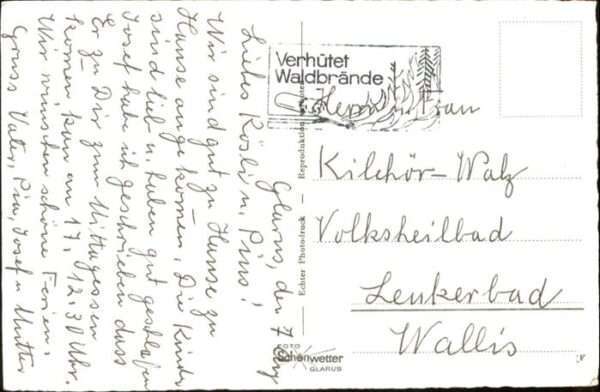 Glarus, den 7. Aug
Liebes Rösli u. Pius!
Wir sind gut zu Hause zu
Hause angekommen. Die Kinder
sind lieb u. haben gut geschlafen
Josef habe ich geschrieben dass
Er zu Dir zum Mittagessen
kommen kann am 17. 12.30 Uhr.
Wir wünschen schöne Ferien.
Gruss Vater, Pia, Josef u Mutter
Echter Photodruck — Reproduktion verboten
Verhütet
Waldbrände
Herrn u. Frau
Kilchör-Walz
Volksheilbad
Leukerbad
Wallis
FOTO
Schönwetter
GLARUS